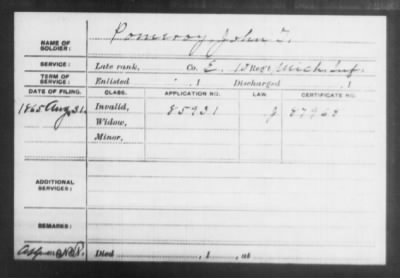 NAME OF SOLDIER: Pomeroy, John T.
SERVICE: Late rank, Co. E. 15 Reg't Mich. Inf.
TERM OF SERVICE: Enlisted , 1 Discharged , 1
DATE OF FILING. CLASS. APPLICATION NO. LAW. CERTIFICATE NO.
1865 Aug 31. Invalid, 85931 87968
Widow,
Minor,
ADDITIONAL SERVICES:
REMARKS:
Died , 1 , at